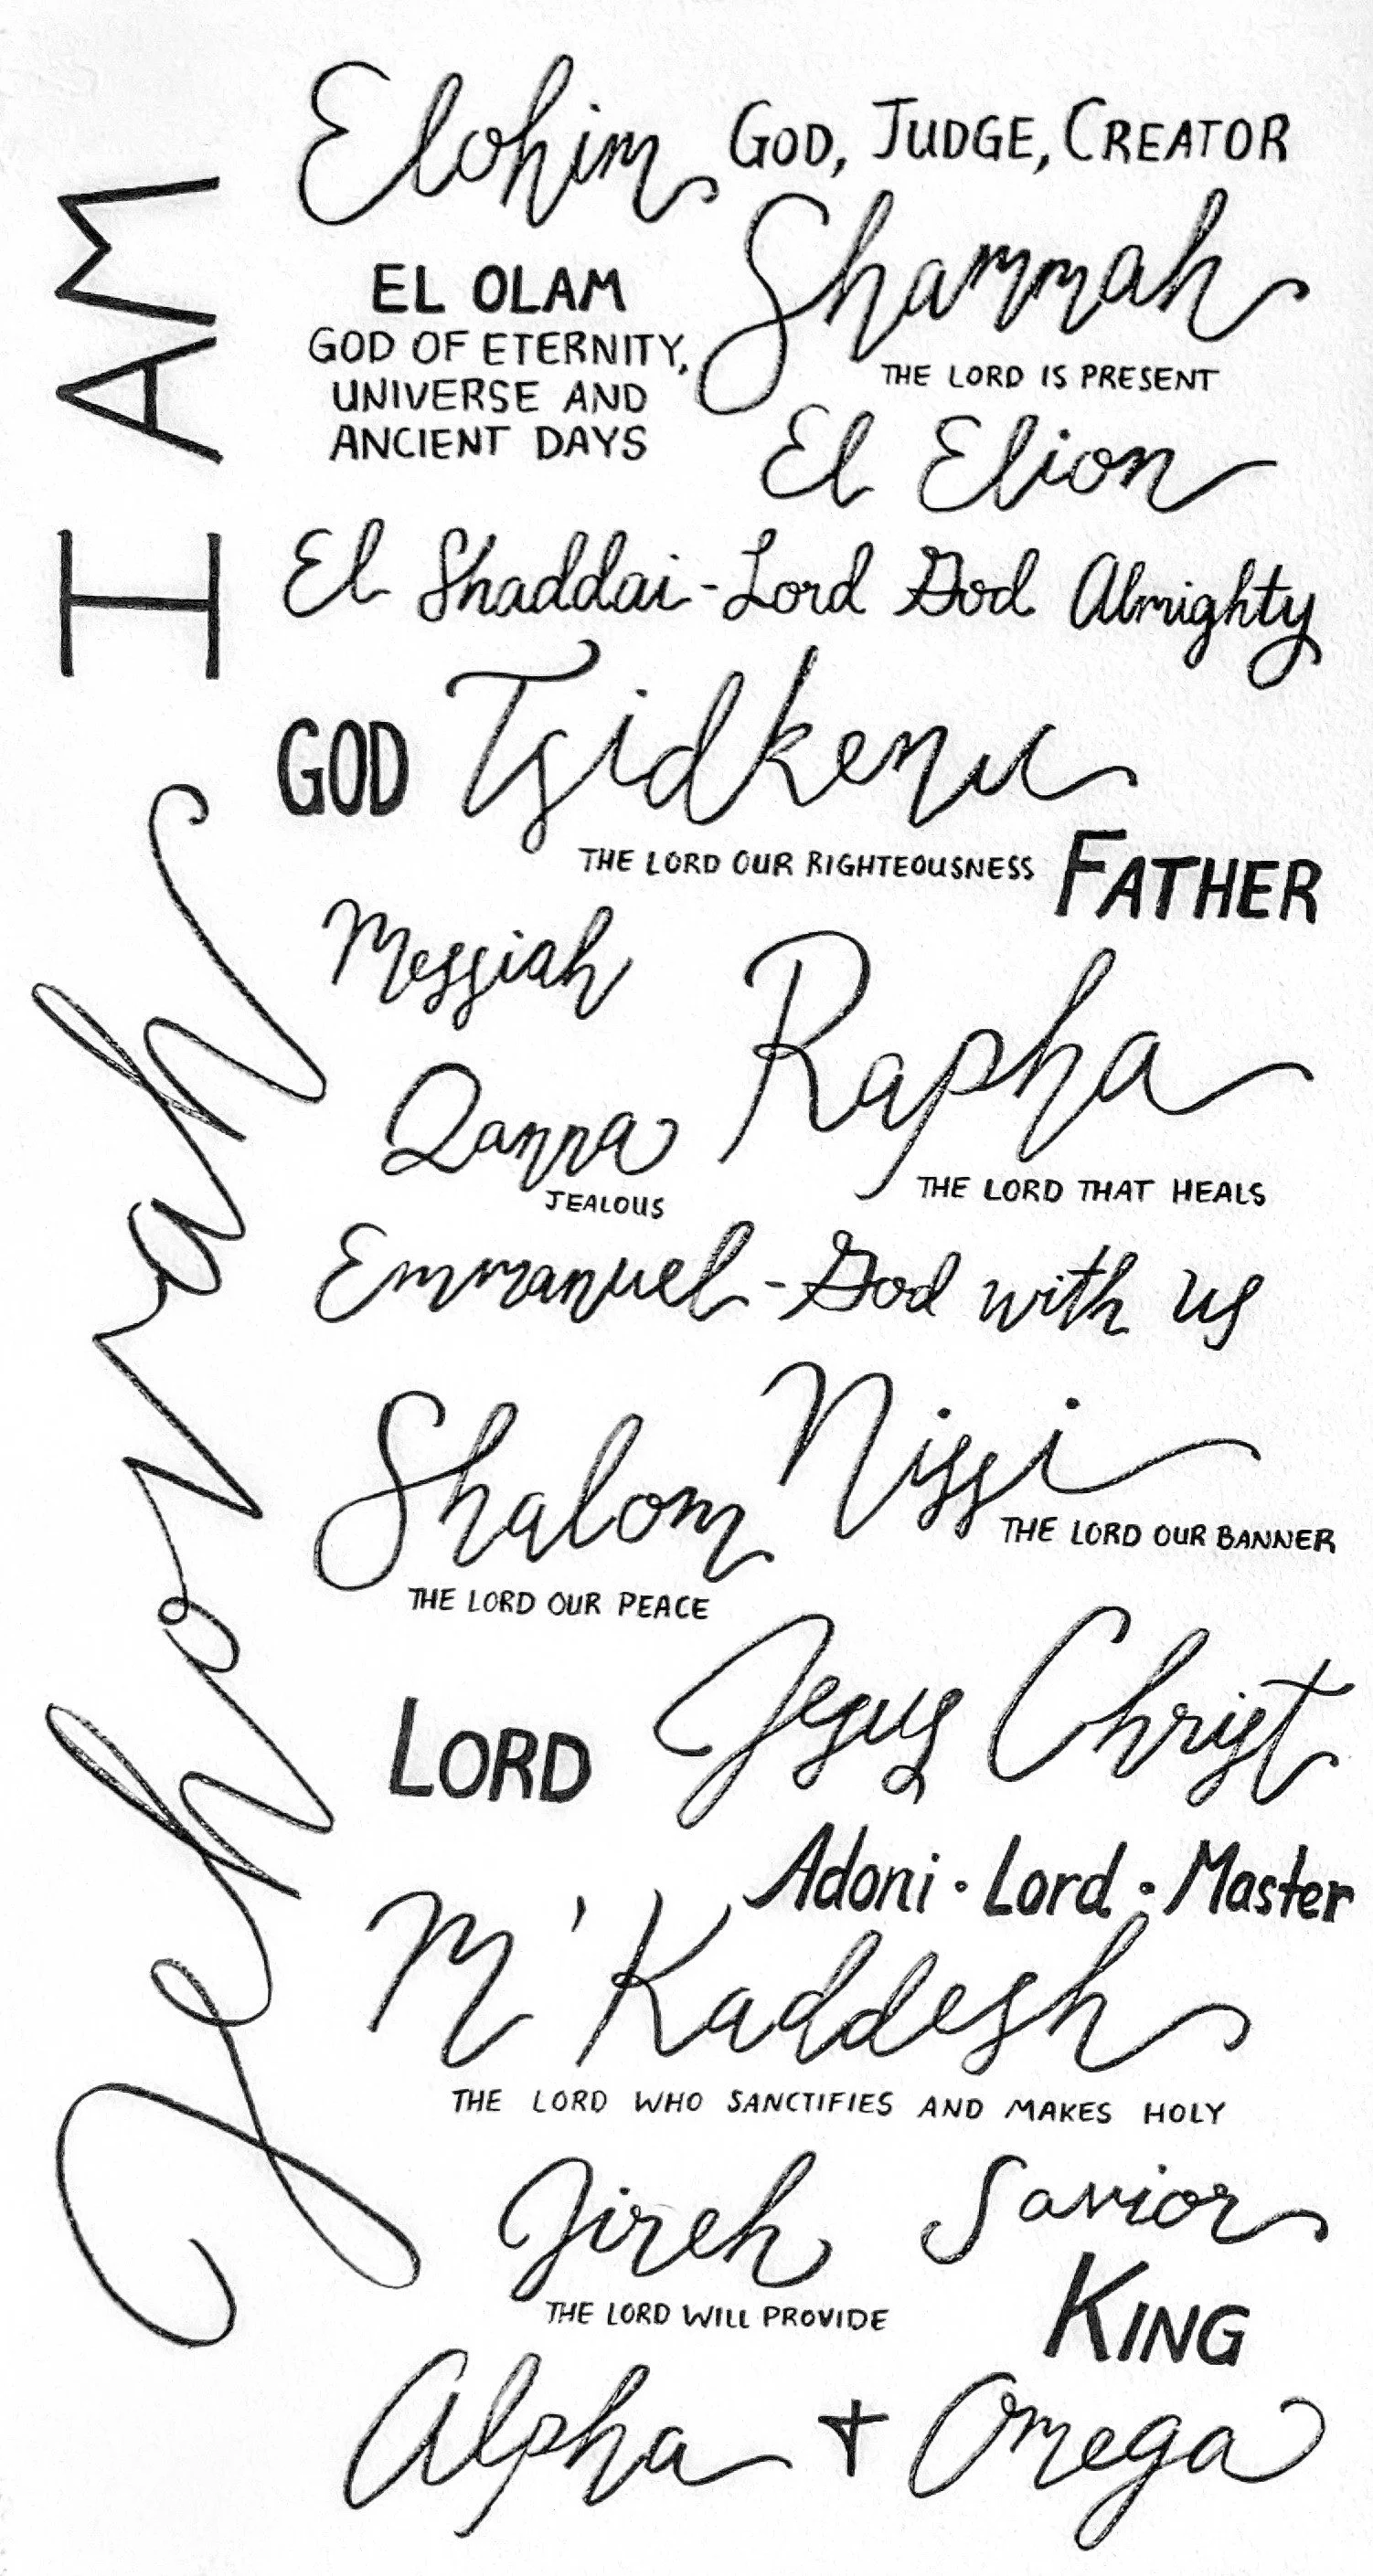 I AM
Jehovah
Elohim GOD, JUDGE, CREATOR
Shammah
THE LORD IS PRESENT
EL OLAM
GOD OF ETERNITY,
UNIVERSE AND
ANCIENT DAYS
El Elion
El Shaddai - Lord God Almighty
GOD Tsidkenu
THE LORD OUR RIGHTEOUSNESS
FATHER
Messiah
Rapha
THE LORD THAT HEALS
Qanna
JEALOUS
Emmanuel - God with us
Nissi
THE LORD OUR BANNER
Shalom
THE LORD OUR PEACE
Jesus Christ
LORD
Adoni · Lord · Master
M'Kaddesh
THE LORD WHO SANCTIFIES AND MAKES HOLY
Jireh
THE LORD WILL PROVIDE
Savior
KING
Alpha + Omega